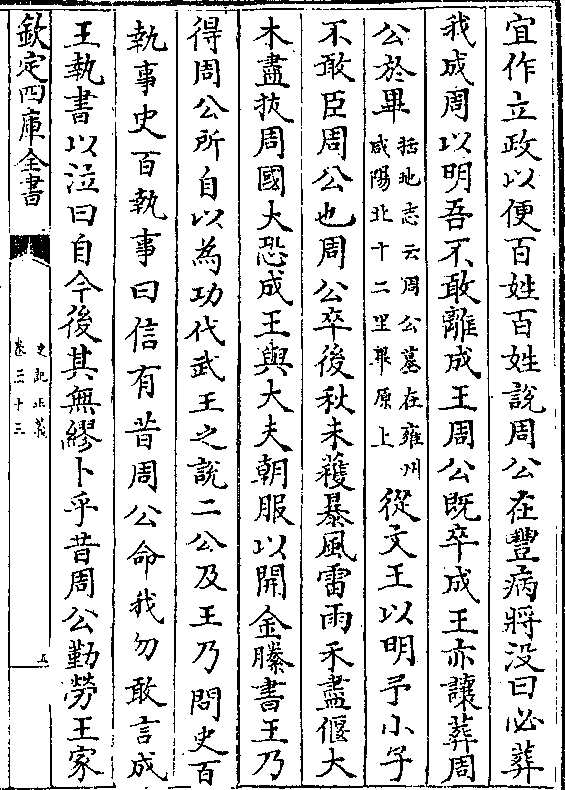 宜作立政以便百姓百姓說周公在豐病將没曰必葬
我成周以明吾不敢離成王周公既卒成王亦讓葬周
公於畢
括地志云周公墓在雍州
咸陽北十二里畢原上
從文王以明予小子
不敢臣周公也周公卒後秋未穫暴風雷雨禾盡偃大
木盡拔周國大恐成王與大夫朝服以開金縢書王乃
得周公所自以為功代武王之說二公及王乃問史百
執事史百執事曰信有昔周公命我勿敢言成
王執書以泣曰自今後其無繆卜乎昔周公勤勞王家
欽定四庫全書
史記正義
卷三十三
五